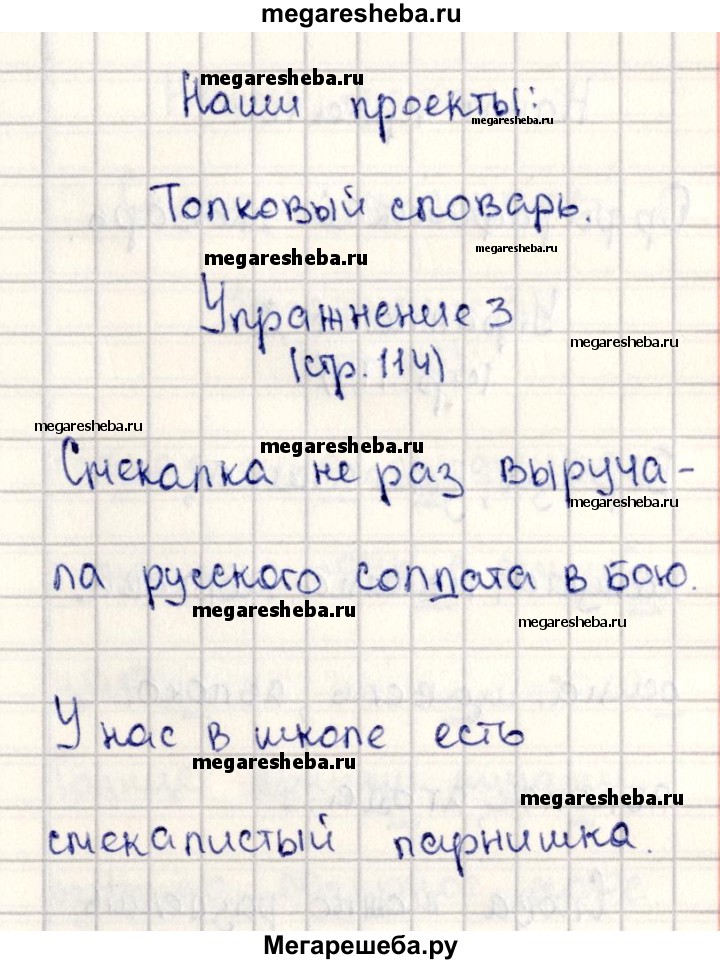 megaresheba.ru
megaresheba.ru
Наши проекты:
megaresheba.ru
Толковый словарь.
megaresheba.ru
megaresheba.ru
Упражнение 3
megaresheba.ru
(стр. 114)
megaresheba.ru
megaresheba.ru
Смекалка не раз выруча-
megaresheba.ru
ла русского солдата в бою.
megaresheba.ru
megaresheba.ru
У нас в школе есть
megaresheba.ru
megaresheba.ru
смекалистый парнишка.
Мегарешеба.ру